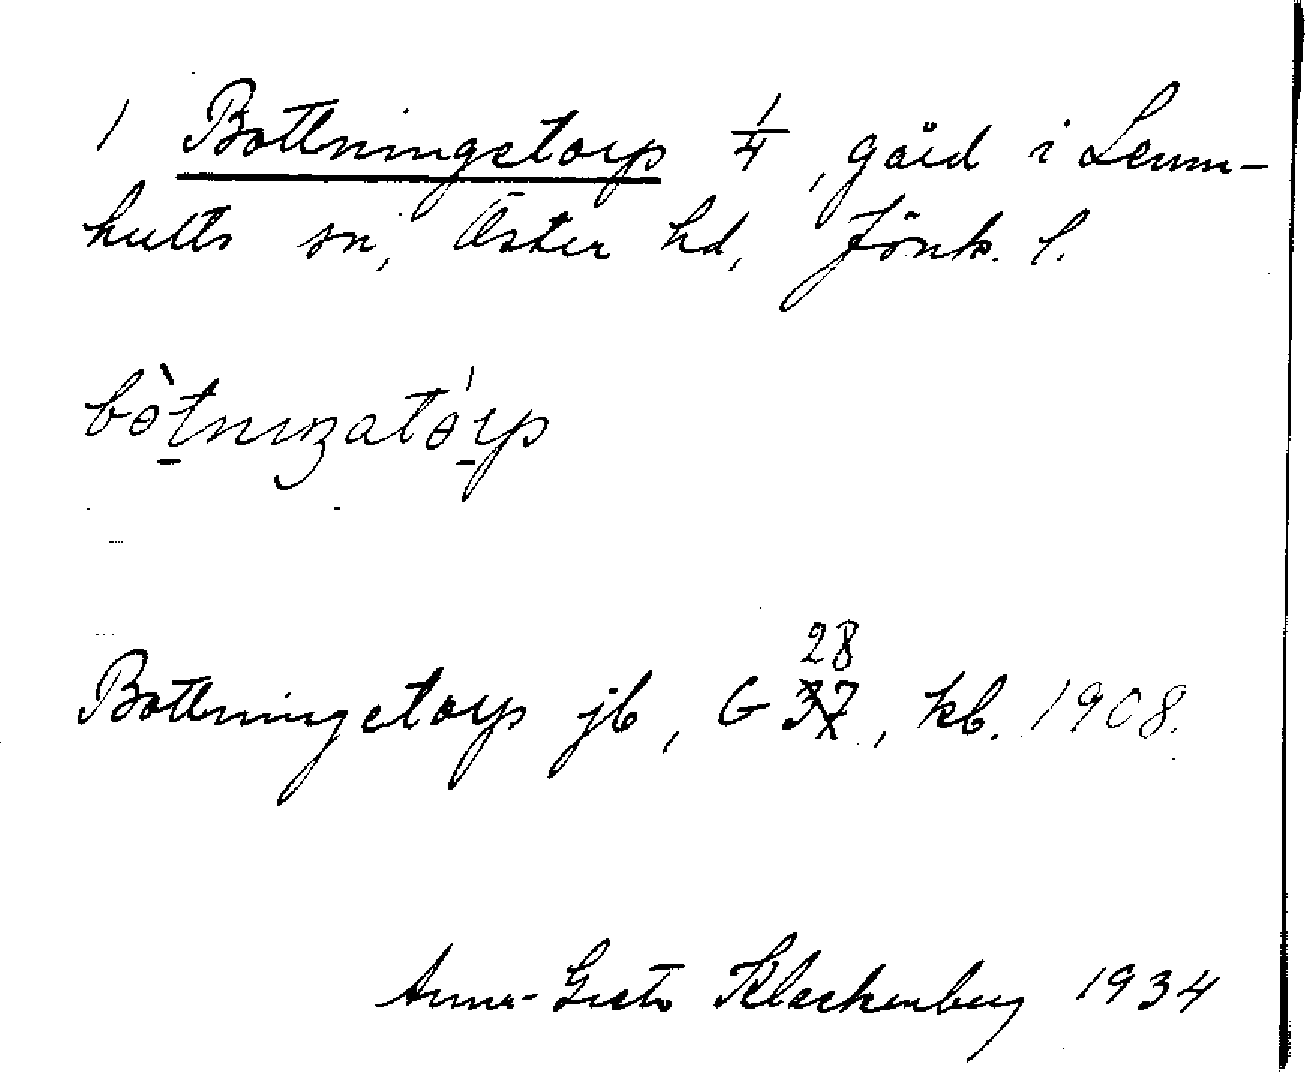 1 Bottningetorp 1/4, gård i Lemn-
hults sn, Öster hd, Jönk. l.
bòtnıŋatórp
28
Bottningetorp jb, G 37, kb. 1908.
Anna-Greta Klackenberg 1934